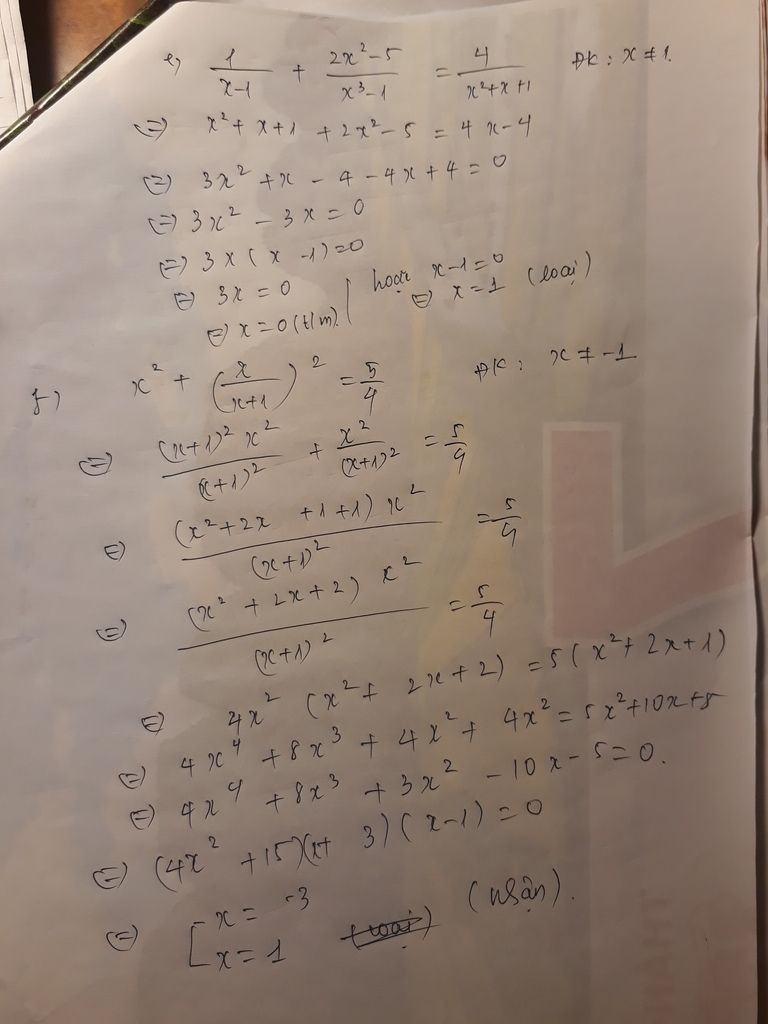 e) 1/(x-1) + (2x²-5)/(x³-1) = 4/(x²+x+1) ĐK: x ≠ 1.
⇔ x²+x+1 + 2x²-5 = 4x-4
⇔ 3x² + x - 4 - 4x + 4 = 0
⇔ 3x² - 3x = 0
⇔ 3x(x-1)=0
⇔ 3x = 0 | hoặc x-1=0
⇔ x=0 (t/m) | ⇔ x=1 (loại)
f) x² + (x/(x+1))² = 5/4 ĐK: x ≠ -1
⇔ (x+1)²x²/(x+1)² + x²/(x+1)² = 5/4
⇔ (x²+2x+1+1)x²/(x+1)² = 5/4
⇔ (x²+2x+2)x²/(x+1)² = 5/4
⇔ 4x²(x²+2x+2) = 5(x²+2x+1)
⇔ 4x⁴ + 8x³ + 4x² + 4x² = 5x²+10x+5
⇔ 4x⁴ + 8x³ + 3x² - 10x - 5 = 0.
⇔ (4x² + 15)(x+3)(x-1) = 0
⇔ [ x = -3
x = 1 (loại) (nhận).